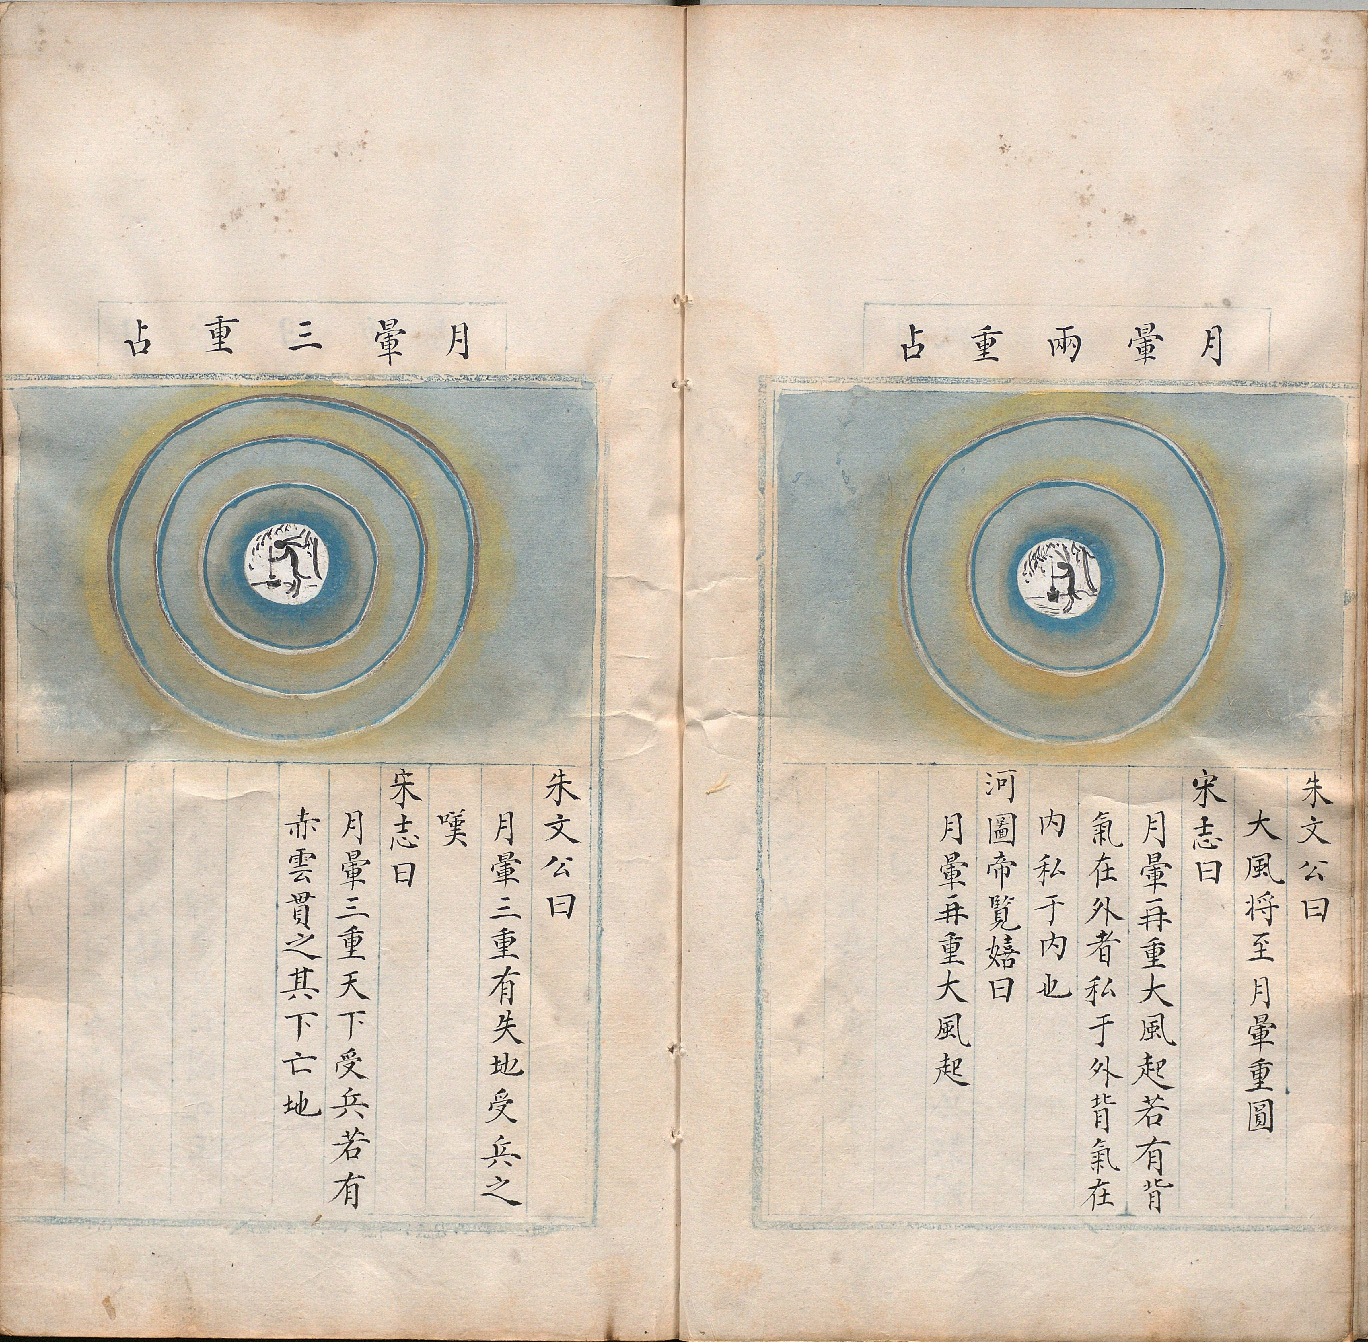 月暈兩重占
朱文公曰
大風将至月暈重圓
宋志曰
月暈再重大風起若有背
氣在外者私于外背氣在
内私于内也
河圖帝覽嬉曰
月暈再重大風起
月暈三重占
朱文公曰
月暈三重有失地受兵之
嘆
宋志曰
月暈三重天下受兵若有
赤雲貫之其下亡地